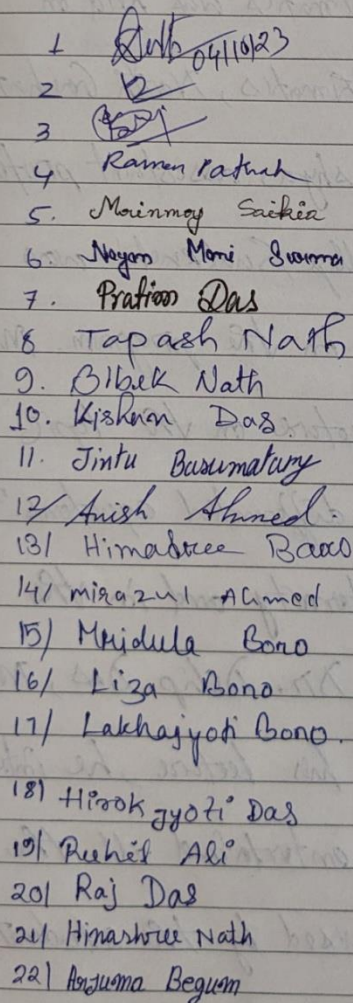 1 04/10/23
2
3
4 Ramen Pathak
5. Moinmoy Saikia
6. Nayan Moni Swarna
7. Pratim Das
8 Tapash Nath
9. Bibek Nath
10. Kishan Das.
11. Jintu Basumatary
12/ Anish Ahmed.
13/ Himashree Baro
14/ mirazul Ahmed
15/ Mridula Boro
16/ Liza Boro
17/ Lakhajyoti Boro.
18/ Hirok jyoti Das
19/ Ruhit Ali
20/ Raj Das
21/ Himashree Nath
22/ Anjuma Begum